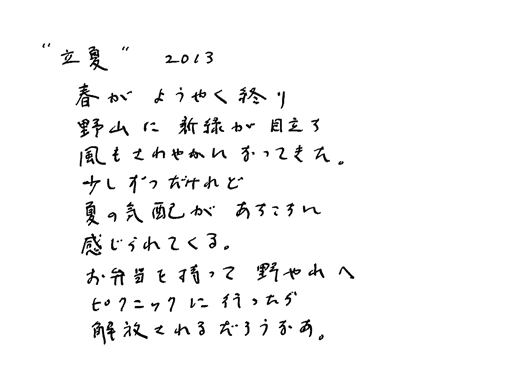 “立夏” 2013
春が ようやく終り
野山に 新緑が目立ち
風もさわやかになってきた。
少しずつだけれど
夏の気配が あちこちに
感じられてくる。
お弁当を持って 野やれへ
ピクニックに行ったら
解放されるだろうなあ。